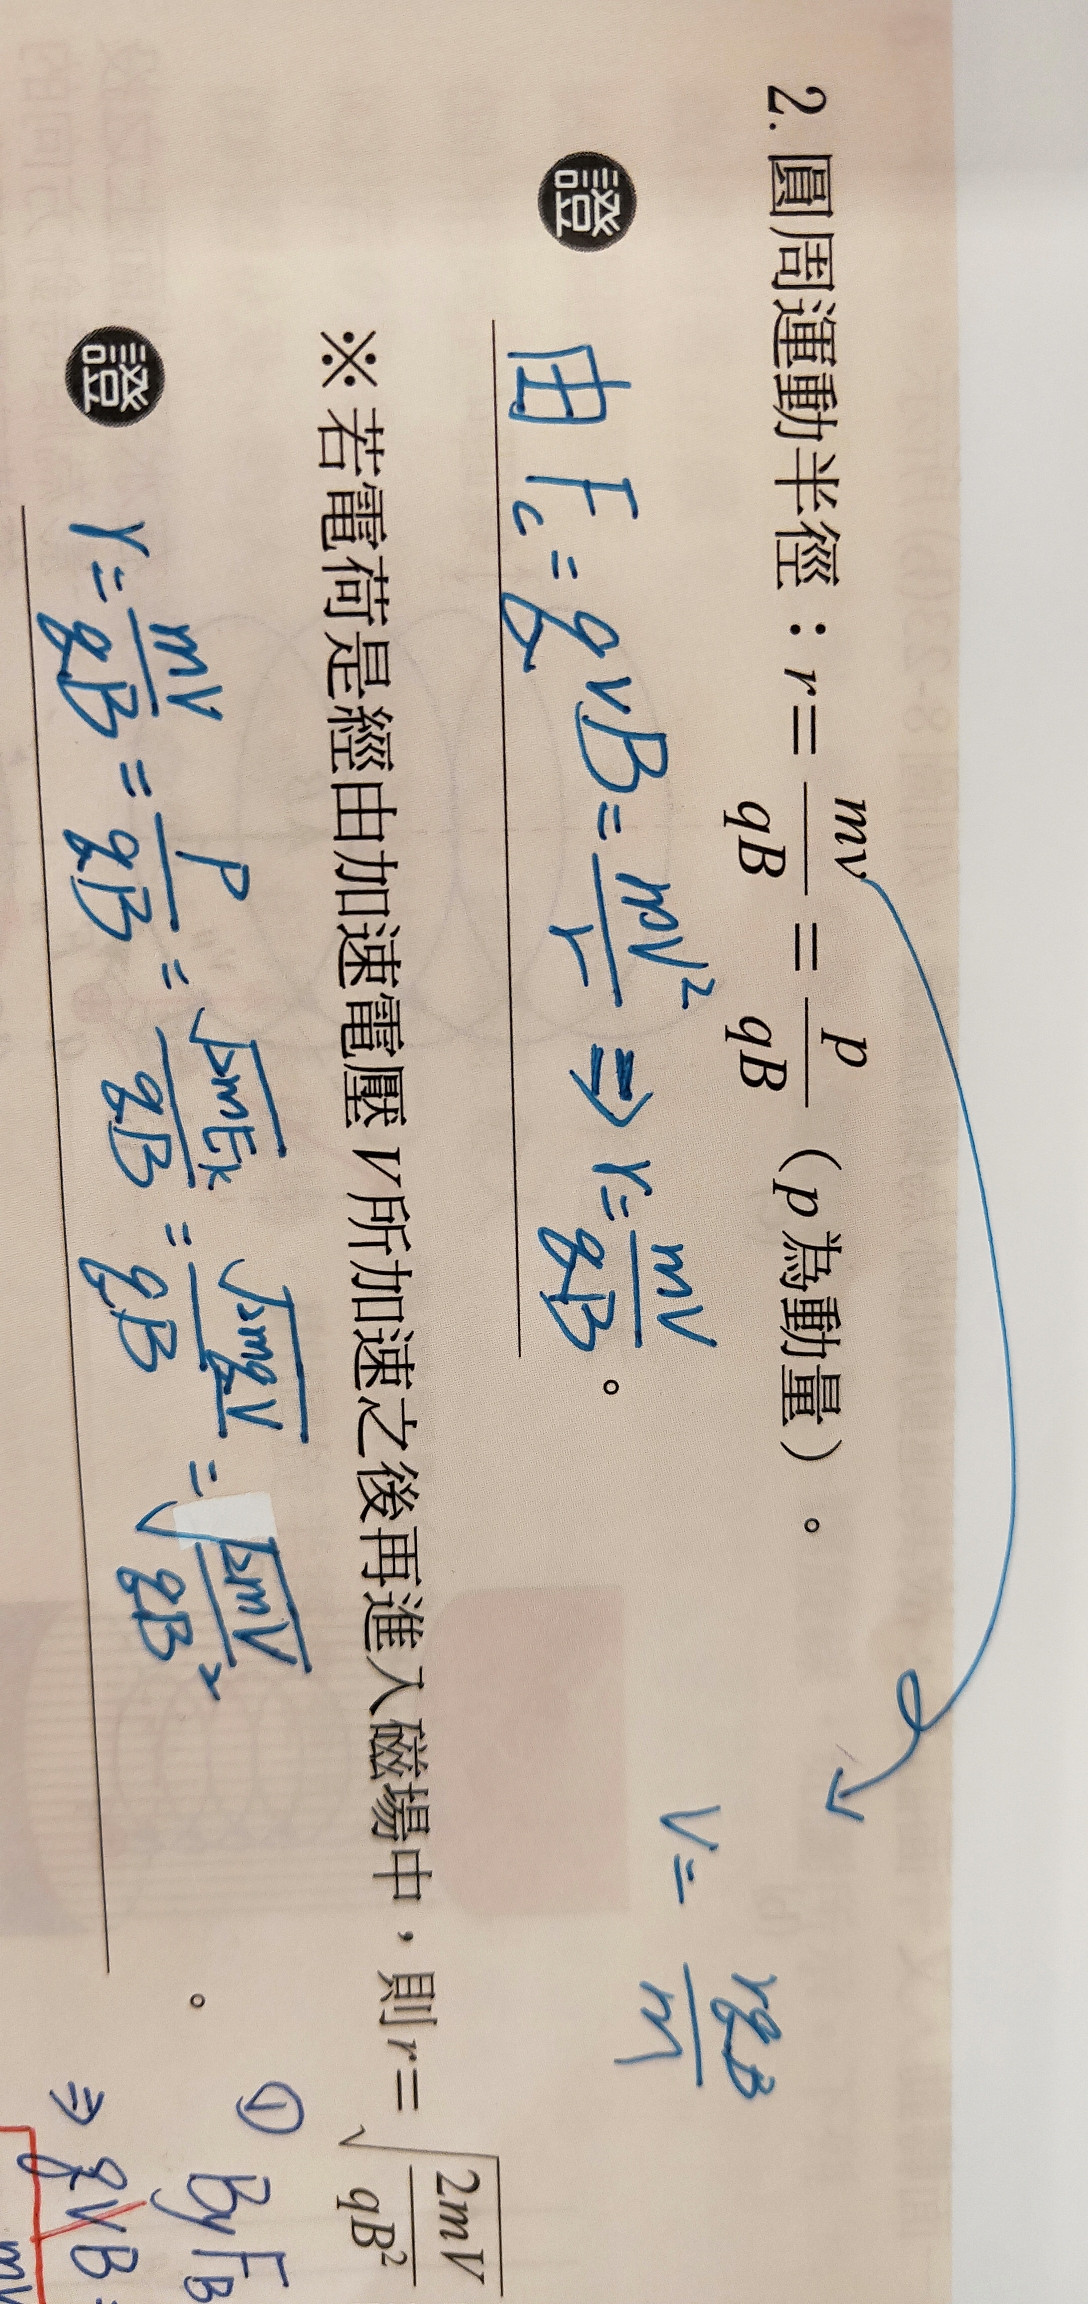 2. 圓周運動半徑：r = mv/qB = p/qB（p為動量）。
v = rqB/m
證 由 Fc = qvB = mv²/r ⇒ r = mv/qB。
※若電荷是經由加速電壓V所加速之後再進入磁場中，則r = √(2mV/qB²)
證 r = mv/qB = P/qB = √(2mEk)/qB = √(2mqV)/qB = √(2mV/qB²)。
① By FB
⇒ qvB =
mv